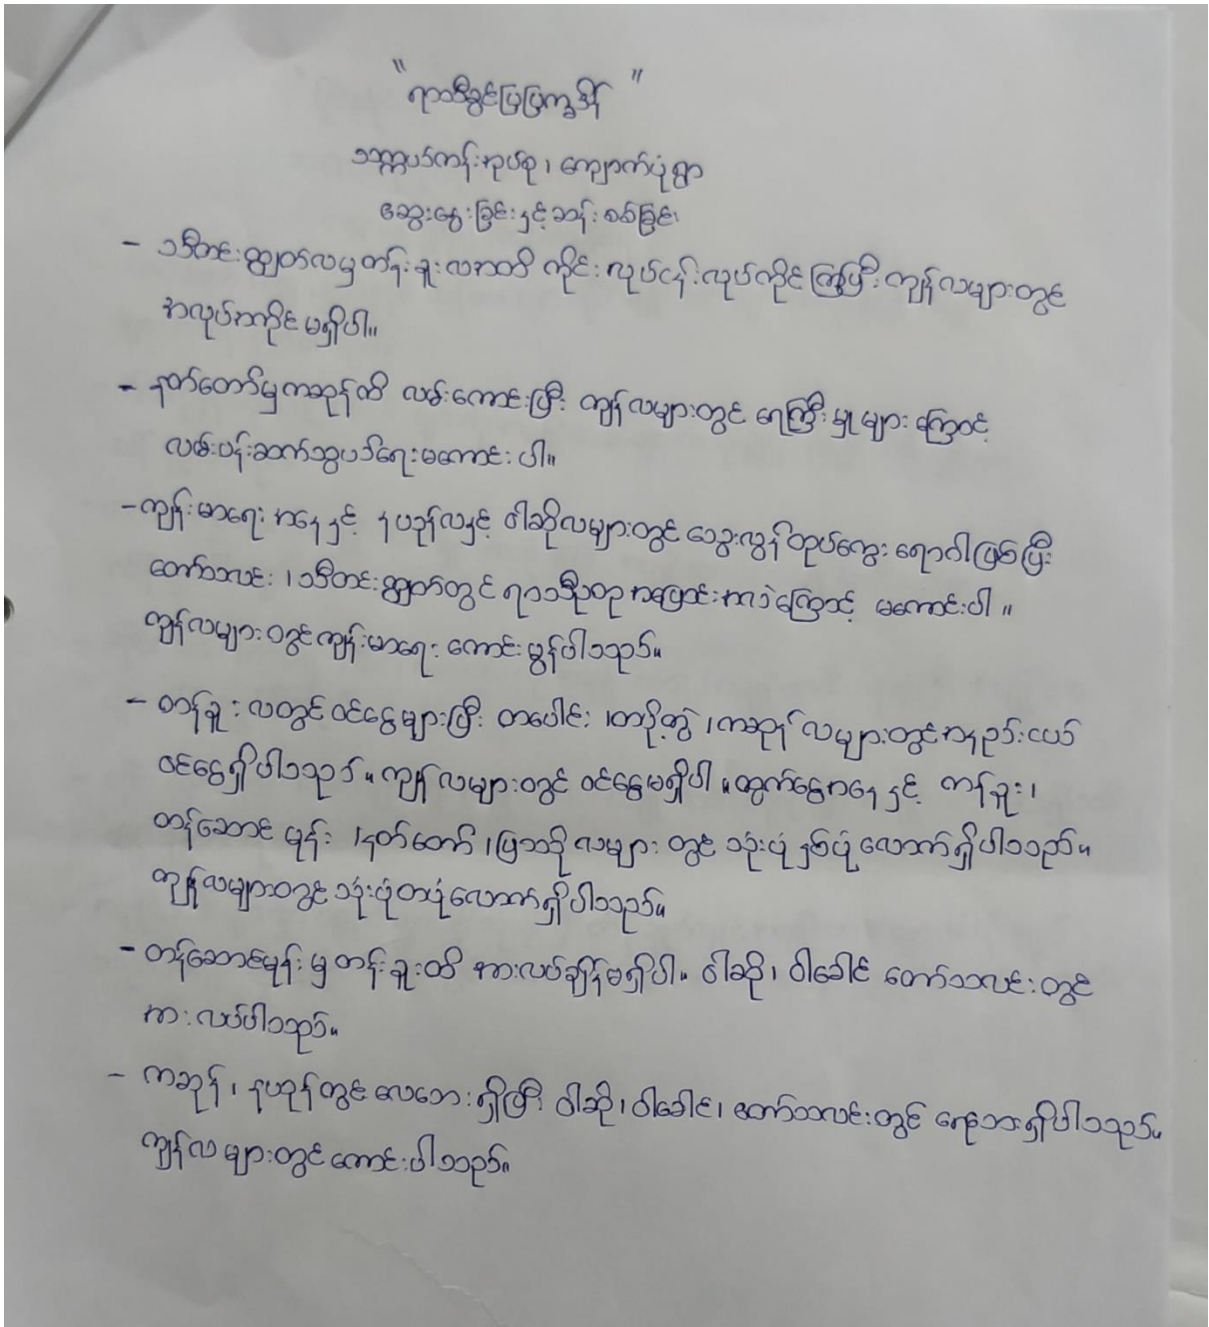 "ရာသီခွင်ပြပြက္ခဒိန်"
သက္ကယ်ကန်းအုပ်စု၊ ကျောက်ပုံရွာ
ဆွေးနွေးခြင်းနှင့်ဆန်းစစ်ခြင်း
- သီတင်းကျွတ်လမှတန်းခူးလအထိ ကိုင်းလုပ်ငန်းလုပ်ကိုင်ကြပြီး ကျန်လများတွင်
အလုပ်အကိုင်မရှိပါ။
- နတ်တော်မှကဆုန်ထိ လမ်းကောင်းပြီး ကျန်လများတွင် ရေကြီးမှုများကြောင့်
လမ်းပန်းဆက်သွယ်ရေးမကောင်းပါ။
- ကျန်းမာရေးအနေနှင့် နယုန်လနှင့် ဝါဆိုလများတွင် သွေးလွန်တုပ်ကွေးရောဂါဖြစ်ပြီး
တော်သလင်း၊ သီတင်းကျွတ်တွင် ရာသီဥတုအပြောင်းအလဲကြောင့် မကောင်းပါ။
ကျန်လများတွင်ကျန်းမာရေးကောင်းမွန်ပါသည်။
- တန်ခူးလတွင်ဝင်ငွေများပြီး တပေါင်း၊ တပို့တွဲ၊ ကဆုန်လများတွင်အနည်းငယ်
ဝင်ငွေရှိပါသည်။ ကျန်လများတွင် ဝင်ငွေမရှိပါ။ ထွက်ငွေအနေနှင့် တန်ခူး၊
တန်ဆောင်မုန်း၊ နတ်တော်၊ ပြာသိုလများတွင် သုံးပုံနှစ်ပုံလောက်ရှိပါသည်။
ကျန်လများတွင်သုံးပုံတပုံလောက်ရှိပါသည်။
- တန်ဆောင်မုန်းမှတန်းခူးထိ အားလပ်ချိန်မရှိပါ။ ဝါဆို၊ ဝါခေါင် တော်သလင်းတွင်
အားလပ်ပါသည်။
- ကဆုန်၊ နယုန်တွင်လေဘေးရှိပြီး ဝါဆို၊ ဝါခေါင်၊ တော်သလင်းတွင် ရေဘေးရှိပါသည်။
ကျန်လများတွင်ကောင်းပါသည်။